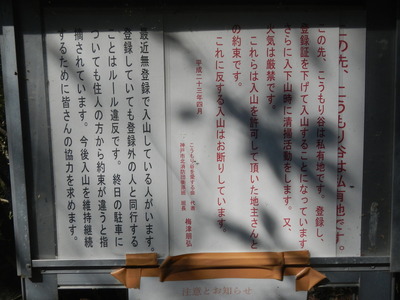 この先、こうもり谷は私有地です。
この先、こうもり谷は私有地です。登録し、
登録証を下げて入山することになっています
さらに入下山時に清掃活動をします。又、
火気は厳禁です。
これらは入山を許可して頂いた地主さんと
の約束です。
これに反する入山はお断りしています。
平成二十三年四月
こうもり谷を愛する会 代表
神戸市北消防団
班長 梅津順弘
最近無登録で入山している人がいます。
登録していても登録外の人と同行する
ことはルール違反です。終日の駐車に
ついても住人の方から約束が違うと指
摘されています。今後入山を維持継続
するために皆さんの協力を求めます。
注意とお知らせ